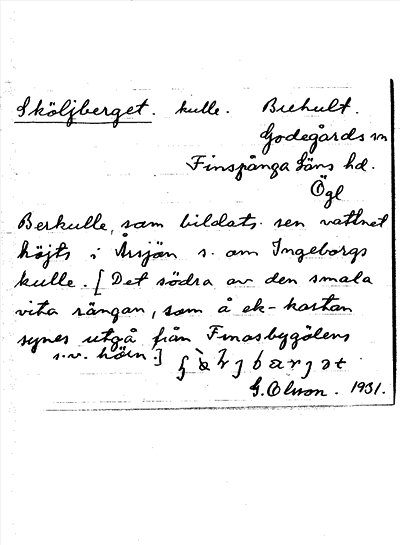 Sköljberget. kulle. Buhult.
Godegårds sn
Finspånga läns hd.
Ögl
Berkulle, som bildats sen vattnet
höjts i Årsjön s. om Ingeborgs
kulle. [Det södra av den smala
vita rängan, som å ek-kartan
synes utgå från Finasbygölens
s.v. hörn.]
G. Olsson. 1931.